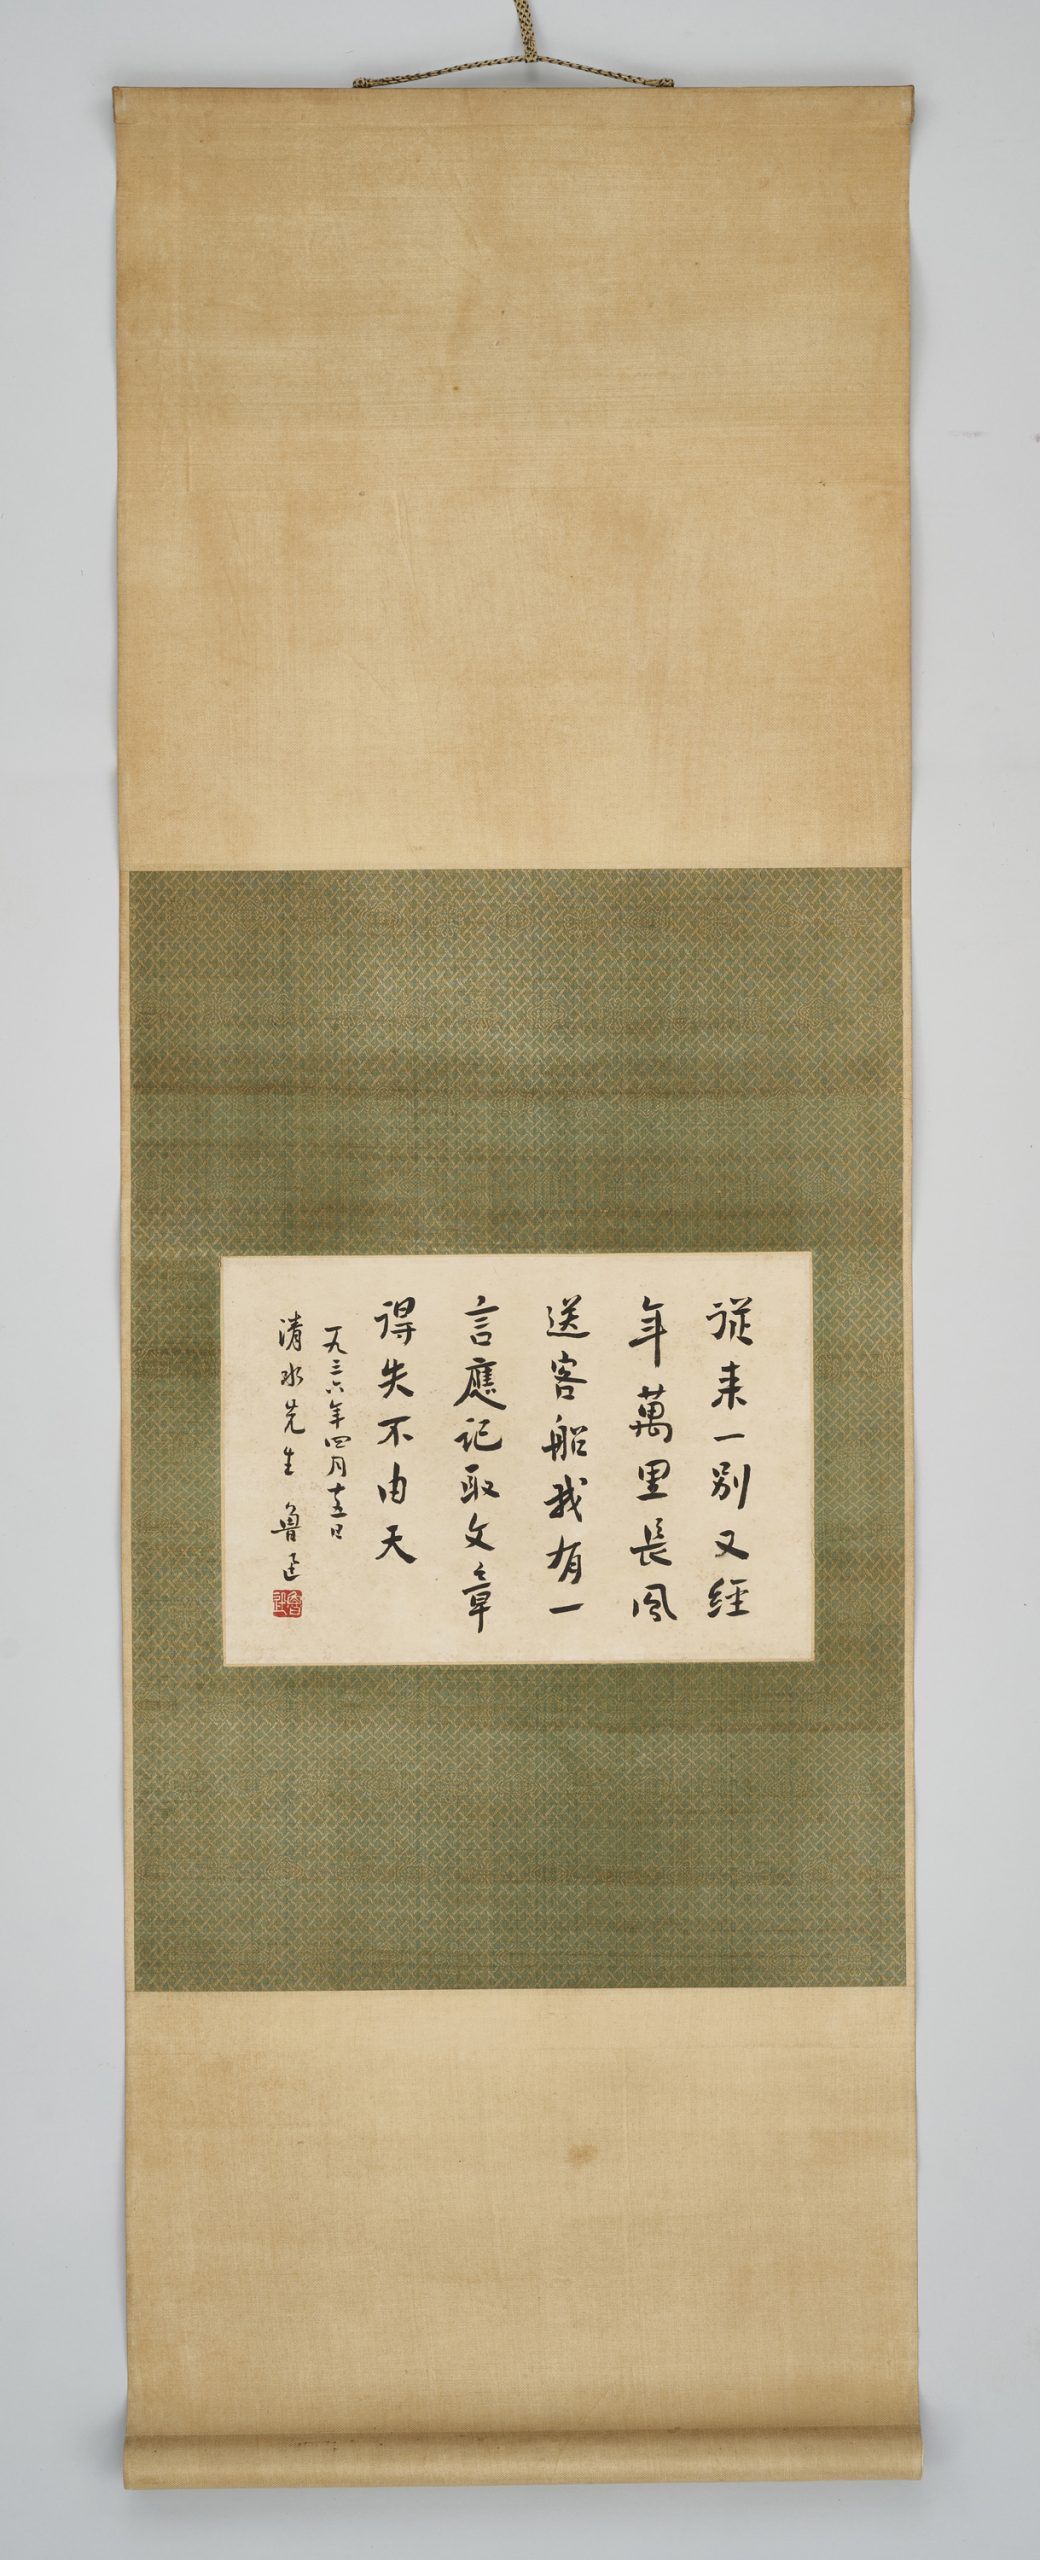 從来一別又經
年萬里長風
送客船我有一
言應記取文章
得失不由天
一九三六年四月十五日
清水先生 魯迅
魯迅